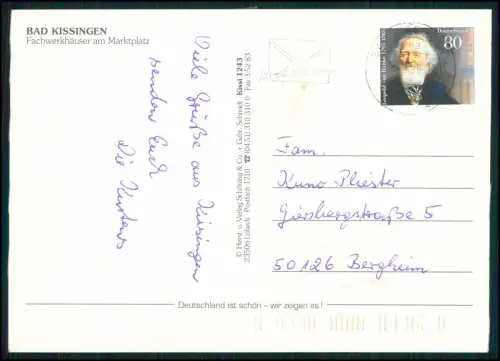 BAD KISSINGEN
Fachwerkhäuser am Marktplatz
Viele Grüße aus Kissingen
senden Euch
Die
© Herst. u. Verlag Schöning & Co. + Gebr. Schmidt Kissi 1243
23506 Lübeck Postfach 1710 ☎ (0451) 310 310 Fax 3 52 83
Deutschland
80
Leopold von Ranke 1795-1886
Fam.
Kuno Pliester
Giersbergstraße 5
50126 Bergheim
Deutschland ist schön – wir zeigen es!